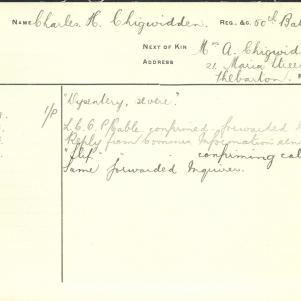 NAME Charles H. Chigwidden. REG. &c. 50th Bat
NEXT OF KIN Mrs A. Chigwid
ADDRESS 21, Maria
Thebarton.
1/P "Dysentery, severe."
L.C.C. P/Cable confirmed, forwarded
Reply from Commn Information
confirming cab
Same forwarded Inquirer.